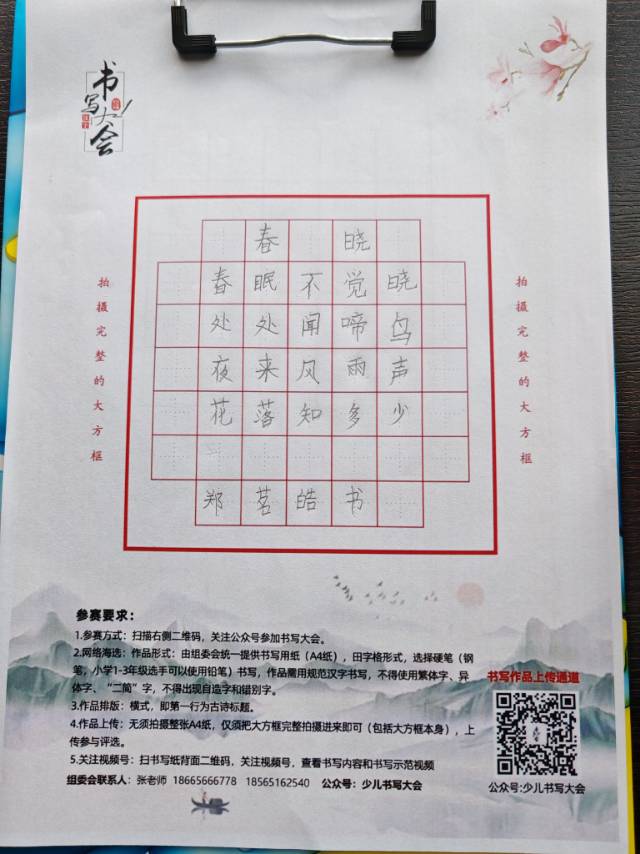 书写大会
春晓
春眠不觉晓
处处闻啼鸟
夜来风雨声
花落知多少
郑茗皓书
拍摄完整的大方框
拍摄完整的大方框
参赛要求：
1.参赛方式：扫描右侧二维码，关注公众号参加书写大会。
2.网络海选：作品形式：由组委会统一提供书写用纸（A4纸），田字格形式，选择硬笔（钢
笔，小学1-3年级选手可以使用铅笔）书写，作品需用规范汉字书写，不得使用繁体字、异
体字、“二简”字，不得出现自造字和错别字。
3.作品排版：横式，即第一行为古诗标题。
4.作品上传：无须拍摄整张A4纸，仅须把大方框完整拍摄进来即可（包括大方框本身），上
传参与评选。
5.关注视频号：扫书写纸背面二维码，关注视频号，查看书写内容和书写示范视频
组委会联系人：张老师 18665666778 18565162540 公众号：少儿书写大会
书写作品上传通道
公众号:少儿书写大会